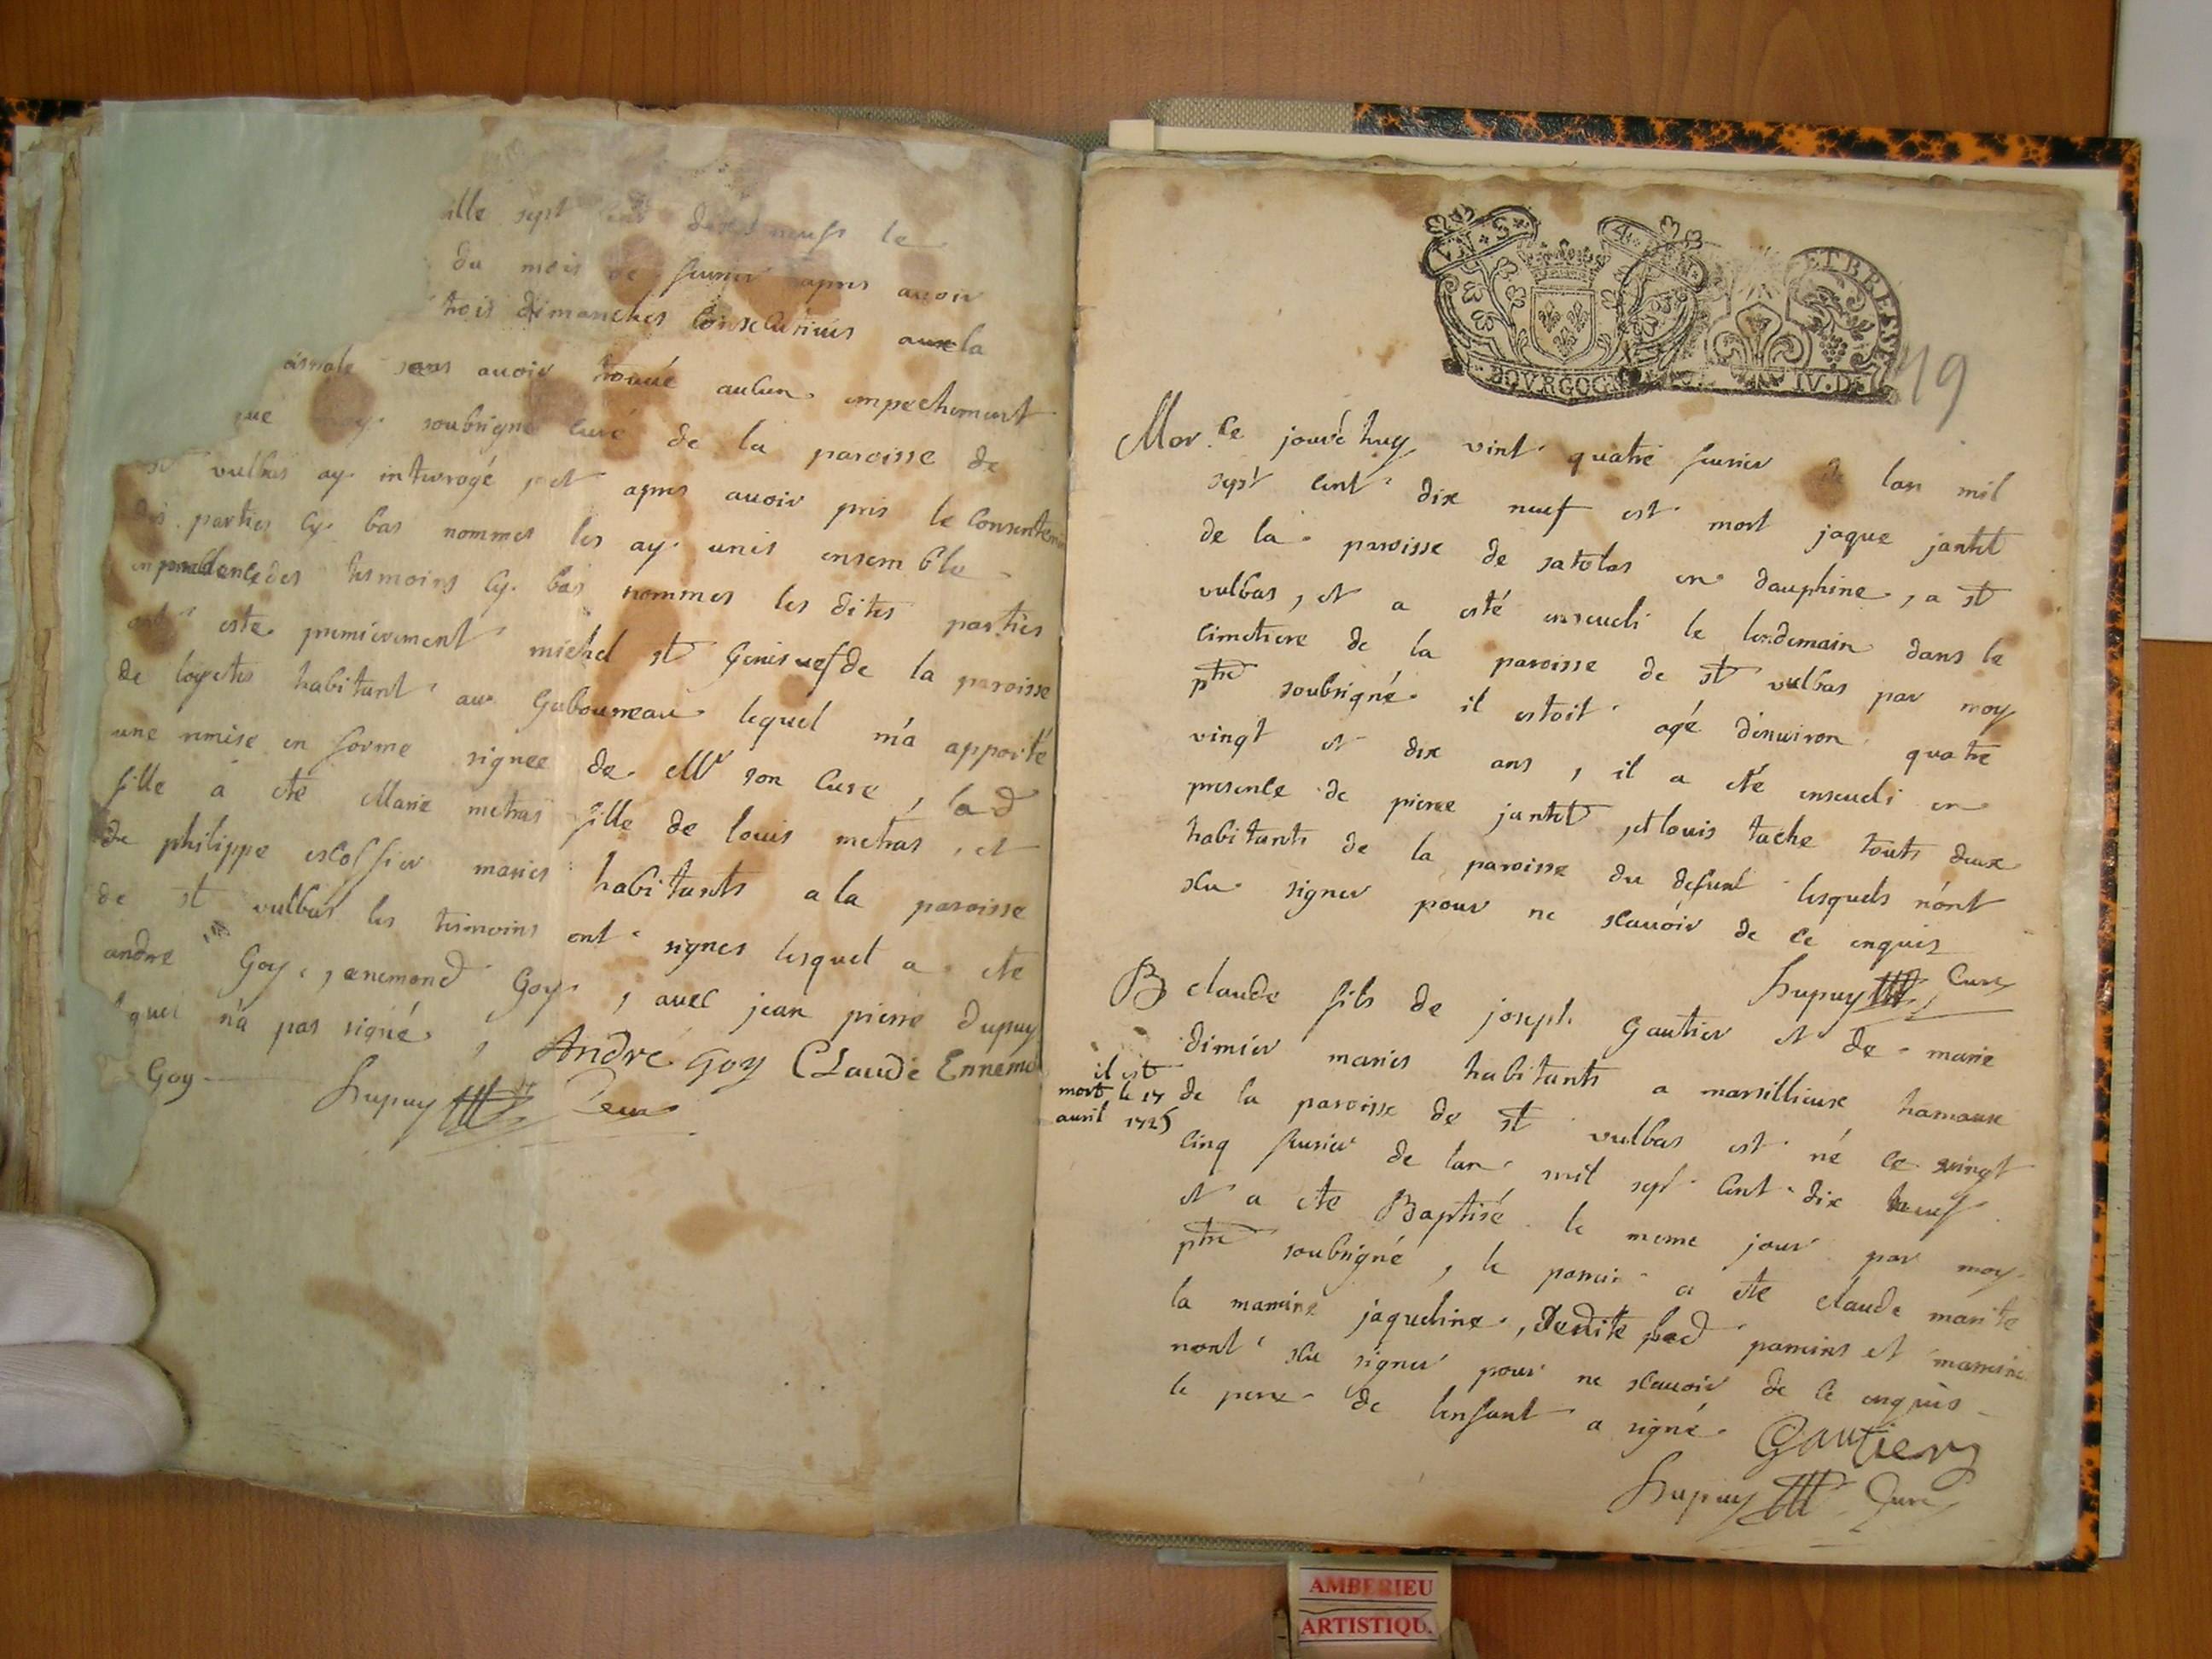 ille sept cent dix neufs le
du mois de feurier apres auoir
trois dimanches Consecutiues a la
sans auoir trouué aucun empechement
que moy soubsigné curé de la paroisse de
st vulbas ay interrogé, et apres auoir pris le Consentem
des parties cy bas nommes les ay unis ensemble
des tesmoins cy bas nommes les dites parties
ont esté premierement michel st Genis uef de la paroisse
de loyetes habitant au Gaboureau lequel m'a apporté
une remise en forme signee de Mr son cure, lad
fille a eté Marie metras fille de louis metras, et
de philippe escoffier maries habitants a la paroisse
de st vulbas les tesmoins ont signes lesquel a eté
andre Goy, enemond Goy, auec jean pierre dupuy
quei n'a pas signé, André Goy CLaude Ennemo
Goy Dupuy Cure
VN S 4 DEN
BOVRGOG ET BRESSE IV.D
19
Mor. Ce jourd'huy vint quatre feurier de lan mil
sept cent dix neuf est mort jaque jantet
de la paroisse de satolas en dauphine, a st
vulbas, et a esté enseueli le lendemain dans le
cimetiere de la paroisse de st vulbas par moy
ptre soubsigné il estoit agé d'enuiron quatre
vingt et dix ans, il a eté enseueli en
presence de pierre jantet, et louis tache touts deux
habitants de la paroisse du defunt lesquels n'ont
scu signer pour ne scauoir de ce enquis
Dupuy Cure
B claude fils de joseph Gautier et de marie
dimier maries habitants a marsillieux hamaux
il est
mort le 17
auril 1725
de la paroisse de st vulbas est né ce vingt
cinq feurier de lan mil sept cent dix neuf
et a eté Baptisé le meme jour par moy
ptre soubsigné, le parrin a eté claude marite
la marrine jaqueline, parrins et marrine
n'ont scu signer pour ne scauoir de ce enquis
le pere de lenfant a signé Gautier
Dupuy Cure
AMBERIEU
ARTISTIQU